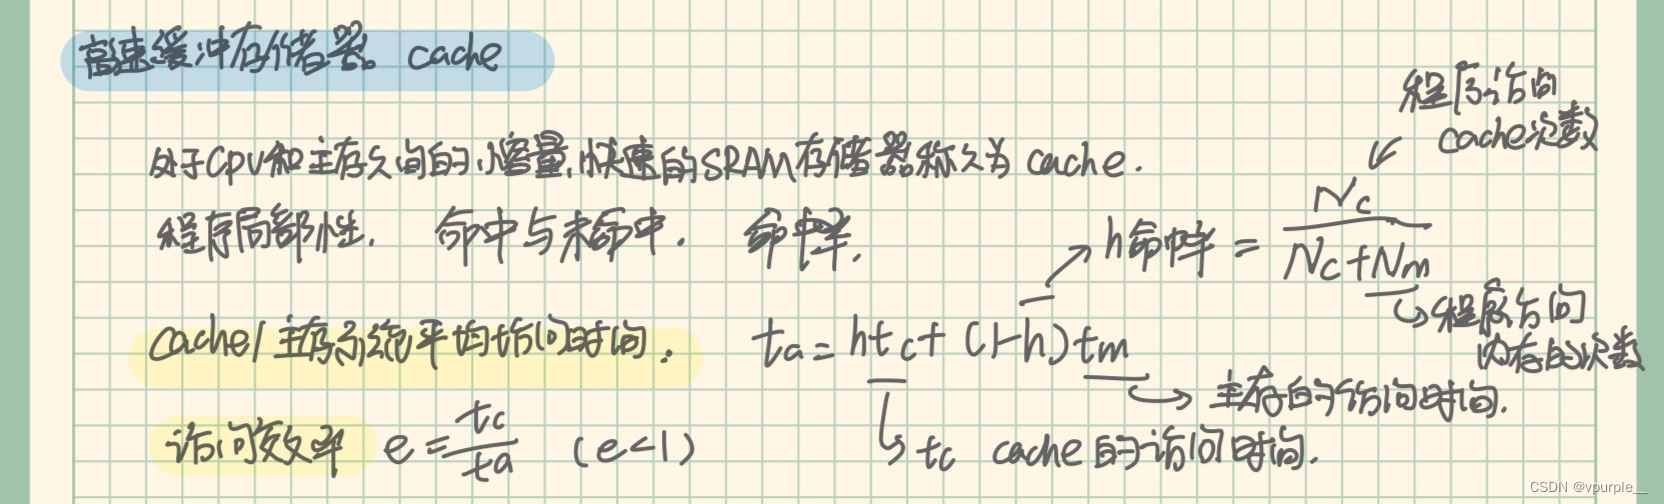 高速缓冲存储器。cache
程序访问
cache次数
处于CPU和主存之间的小容量,快速的SRAM存储器称之为 cache.
程序局部性. 命中与未命中. 命中率.
h命中率 = Nc / Nc+Nm
程序访问
内存的次数
cache/主存系统平均访问时间. ta = htc + (1-h)tm
主存的访问时间.
访问效率 e = tc / ta (e<1)
tc cache的访问时间.
CSDN @vpurple__